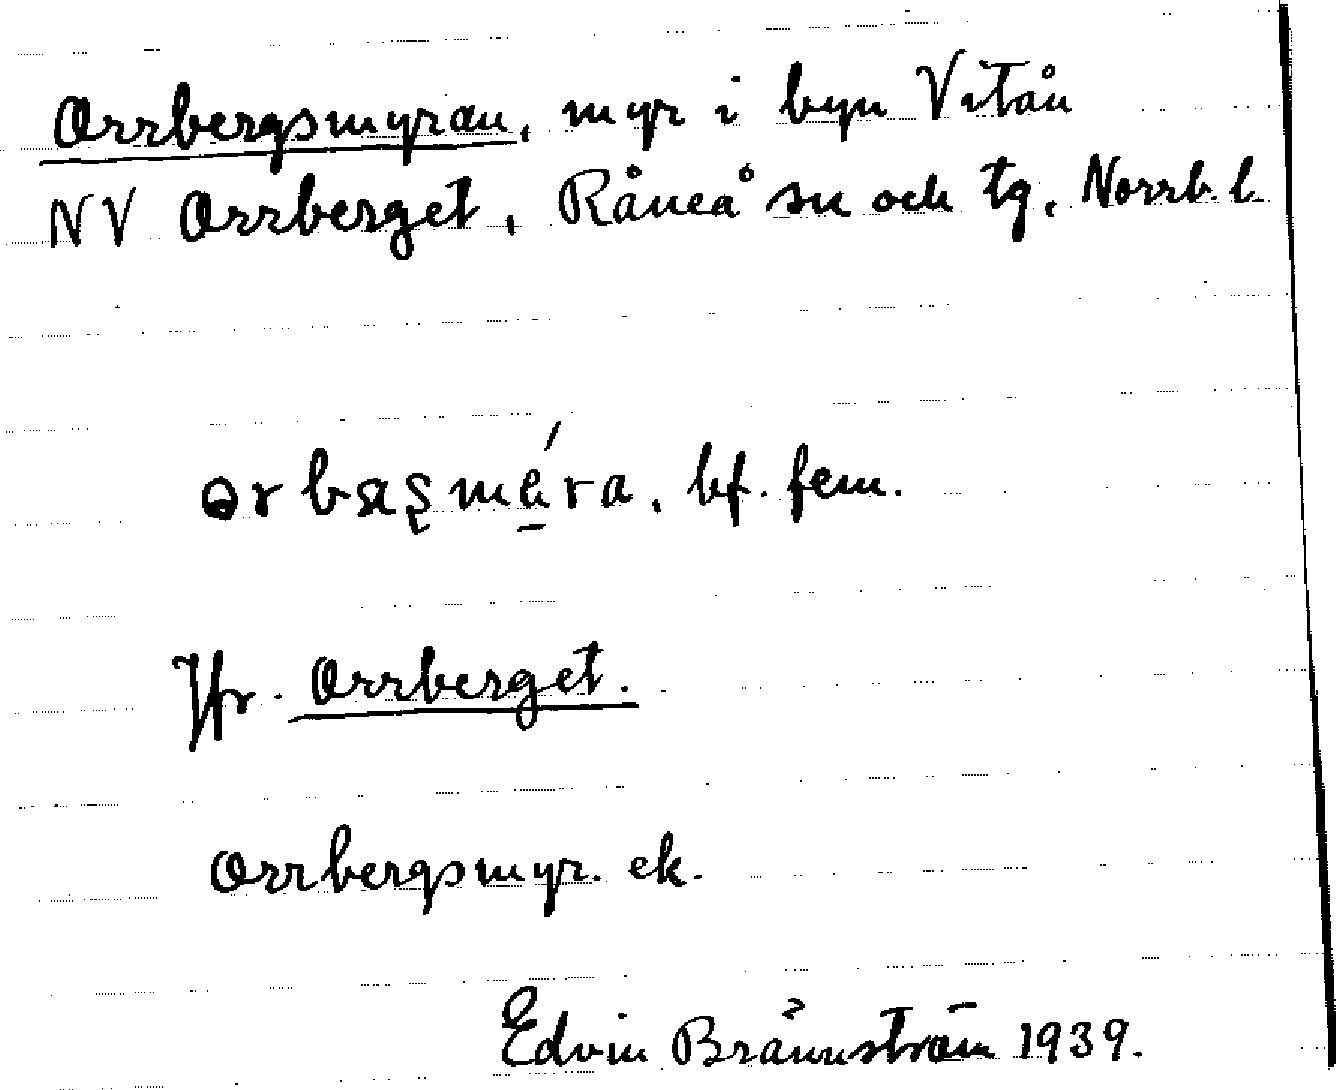 Orrbergsmyran, myr i byn Vitån
NV Orrberget, Råneå sn och tg, Norrb. l.
bf. fem.
Jfr. Orrberget.
Orrbergsmyr. ek.
Edvin Brännström 1939.